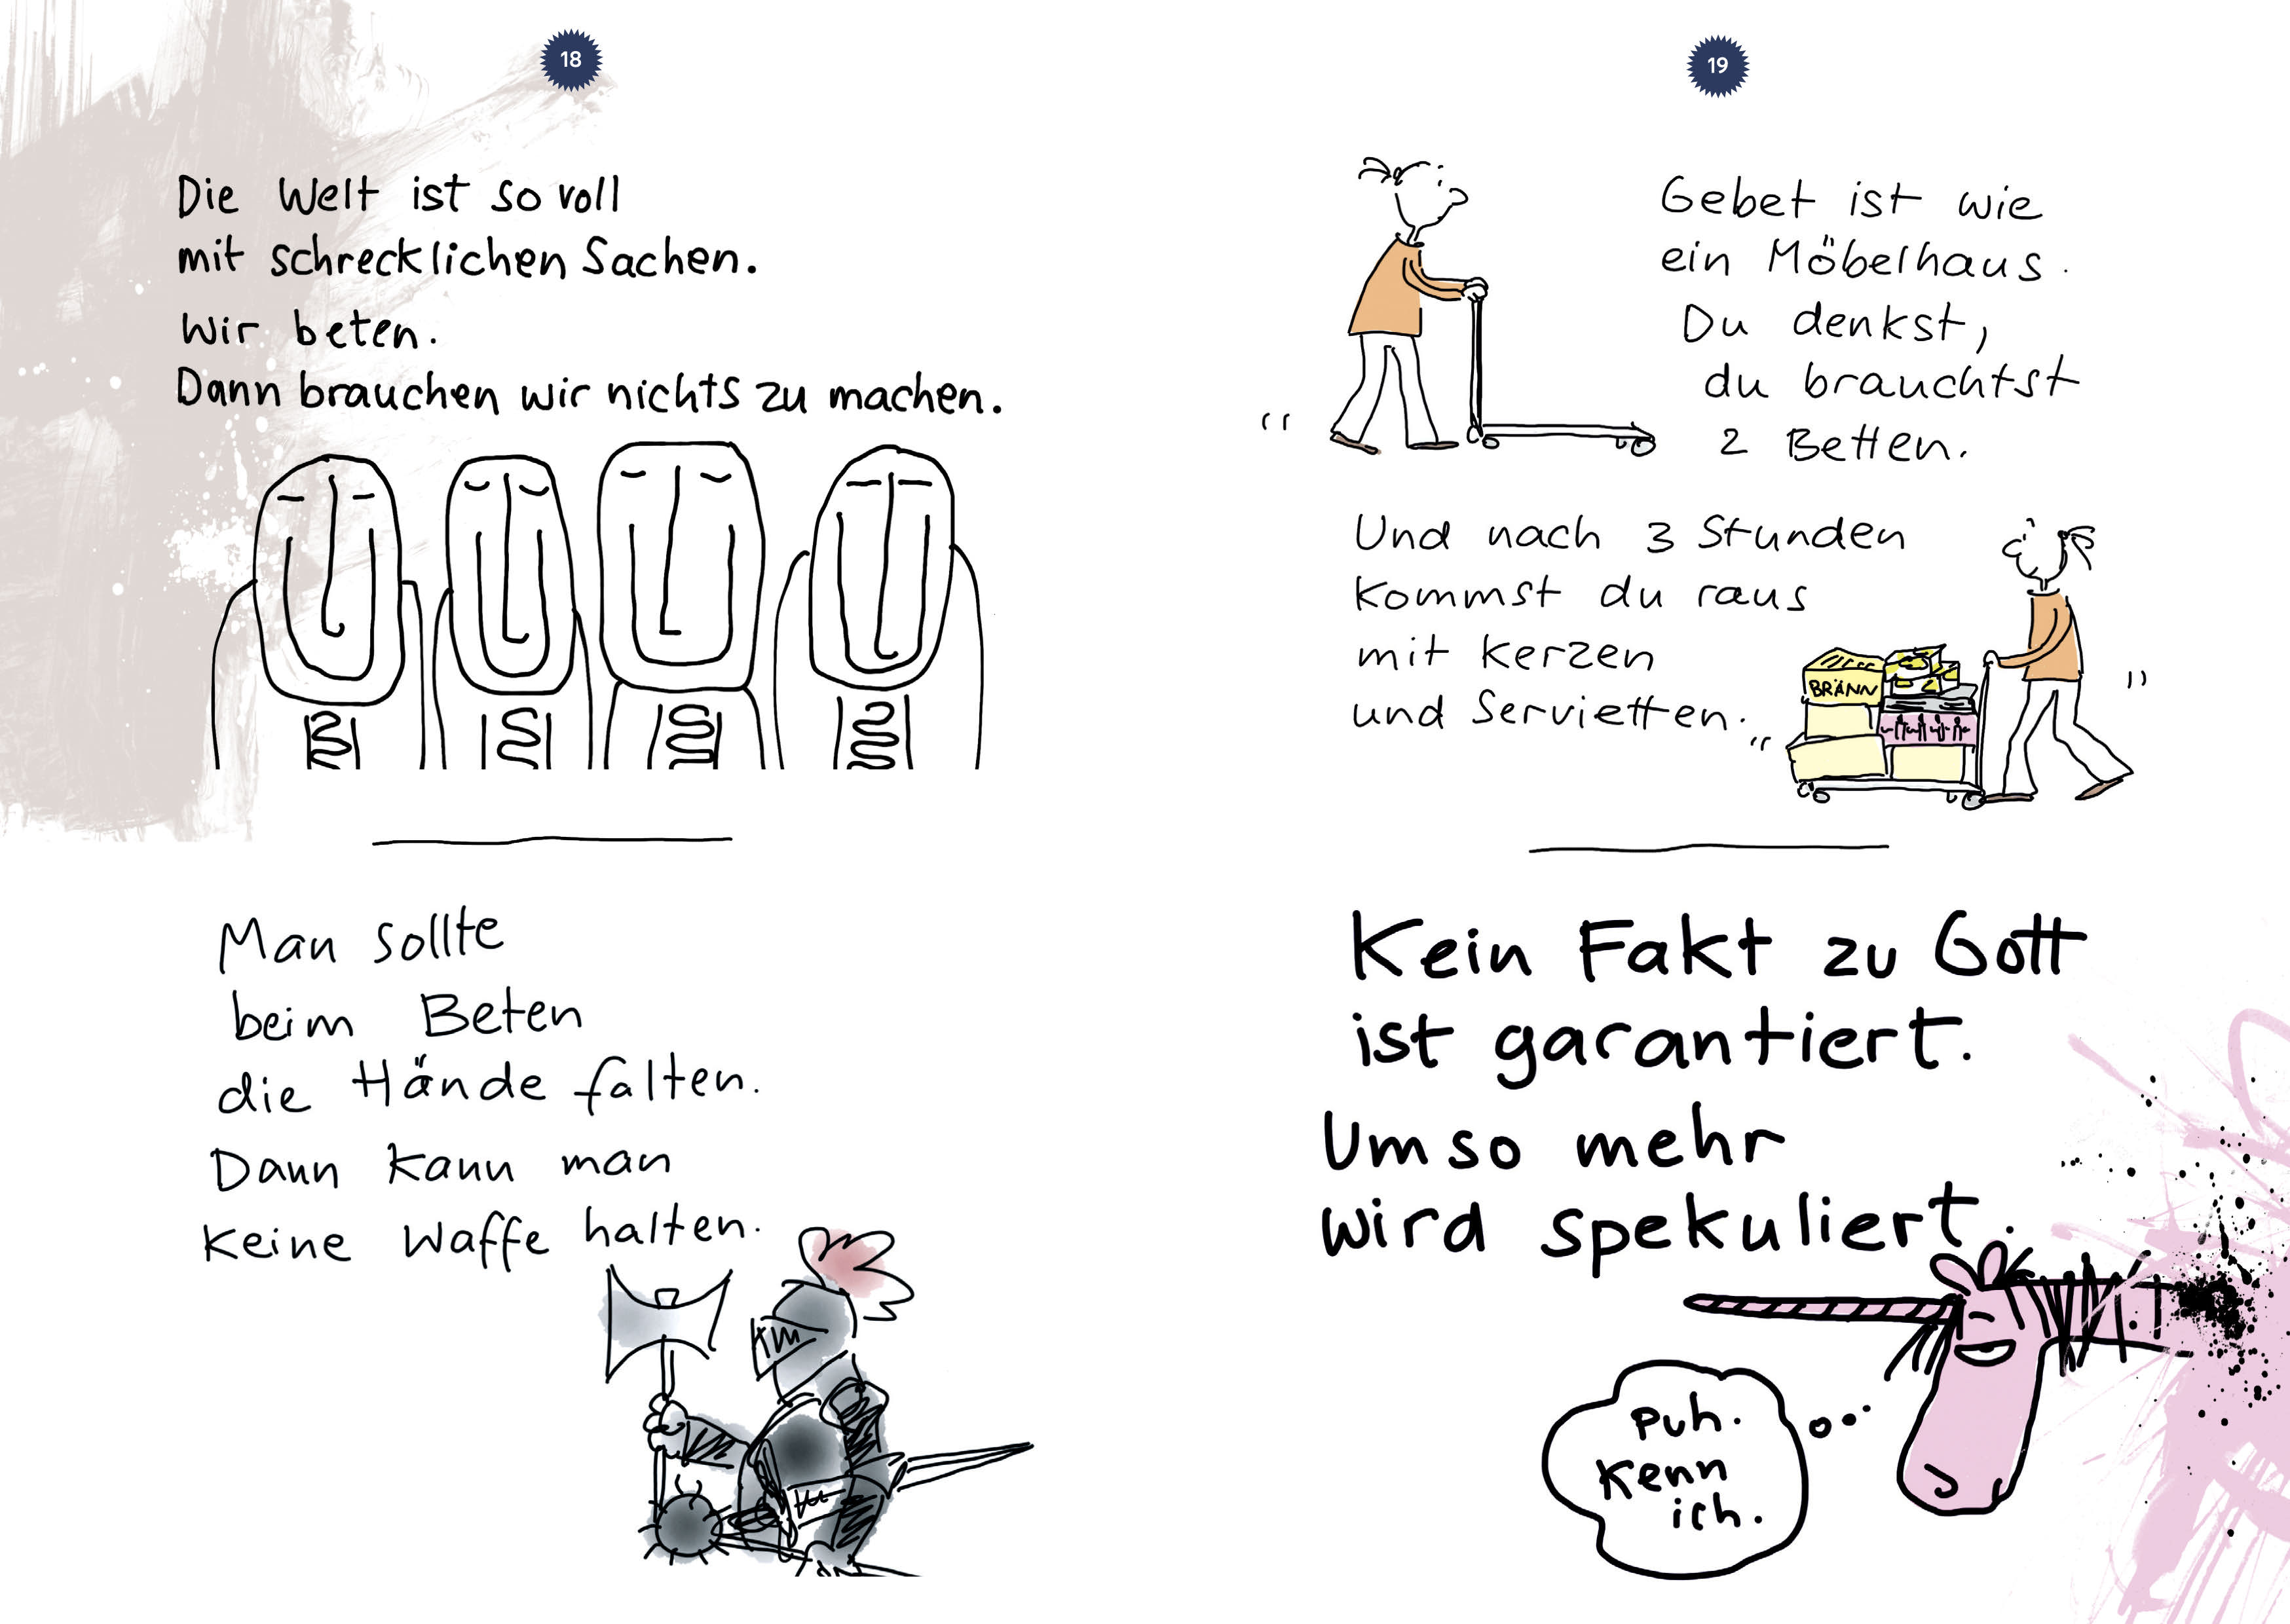 18
Die Welt ist so voll
mit schrecklichen Sachen.
Wir beten.
Dann brauchen wir nichts zu machen.
Man sollte
beim Beten
die Hände falten.
Dann kann man
keine Waffe halten.
19
Gebet ist wie
ein Möbelhaus.
Du denkst,
du brauchtst
2 Betten.
Und nach 3 Stunden
kommst du raus
mit Kerzen
und Servietten.
BRÄNN
Kein Fakt zu Gott
ist garantiert.
Umso mehr
wird spekuliert.
Puh.
Kenn
ich.